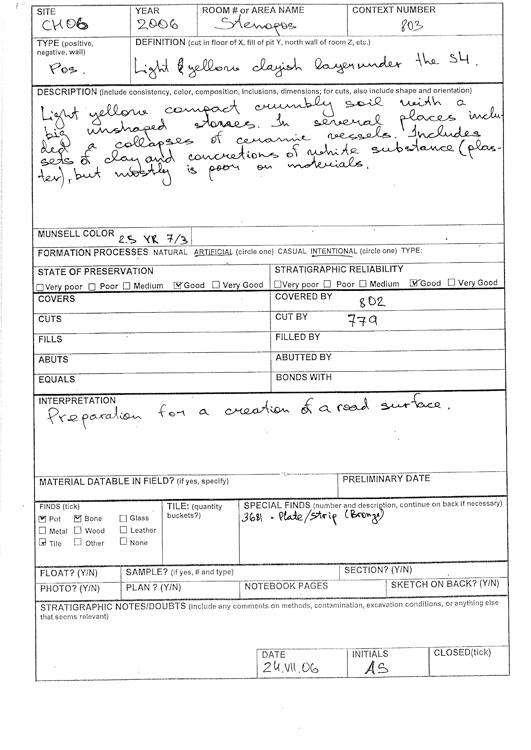 SITE YEAR ROOM # or AREA NAME CONTEXT NUMBER
CH06 2006 Stenopos 803
TYPE (positive, negative, wall) DEFINITION (cut in floor of X, fill of pit Y, north wall of room Z, etc.)
Pos. Light & yellow clayish layer under the S4.
DESCRIPTION (Include consistency, color, composition, inclusions, dimensions; for cuts, also include shape and orientation)
Light yellow compact crumbly soil with a
big unshaped stones. In several places inclu-
ded a collapses of ceramic vessels. Includes
sets of clay and concretions of white substance (plas-
ter), but mostly is poor on materials.
MUNSELL COLOR 2.5 YR 7/3
FORMATION PROCESSES NATURAL ARTIFICIAL (circle one) CASUAL INTENTIONAL (circle one) TYPE:
STATE OF PRESERVATION STRATIGRAPHIC RELIABILITY
Very poor Poor Medium Good Very Good Very poor Poor Medium Good Very Good
COVERS COVERED BY 802
CUTS CUT BY 779
FILLS FILLED BY
ABUTS ABUTTED BY
EQUALS BONDS WITH
INTERPRETATION
Preparation for a creation of a road surface.
MATERIAL DATABLE IN FIELD? (if yes, specify) PRELIMINARY DATE
FINDS (tick) TILE: (quantity buckets?) SPECIAL FINDS (number and description, continue on back if necessary)
Pot Bone Glass 3681 - Plate/strip (Bronze)
Metal Wood Leather
Tile Other None
FLOAT? (Y/N) SAMPLE? (if yes, # and type) SECTION? (Y/N)
PHOTO? (Y/N) PLAN? (Y/N) NOTEBOOK PAGES SKETCH ON BACK? (Y/N)
STRATIGRAPHIC NOTES/DOUBTS (include any comments on methods, contamination, excavation conditions, or anything else
that seems relevant)
DATE INITIALS CLOSED(tick)
24.VII.06 AS